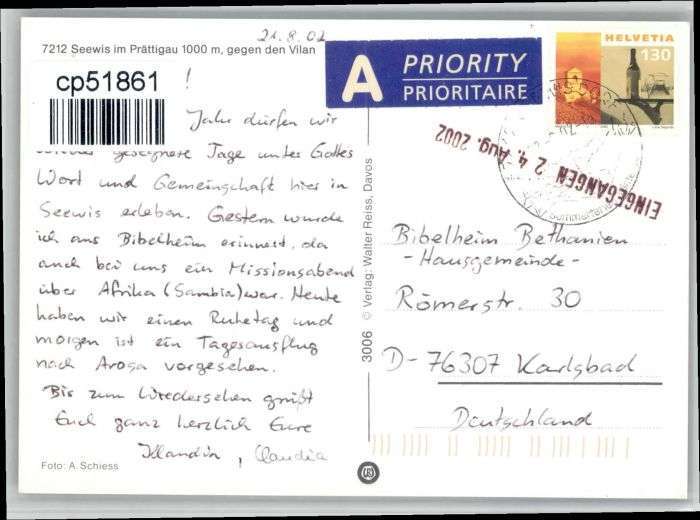 21.8.02
7212 Seewis im Prättigau 1000 m, gegen den Vilan
cp51861
!
Jahr dürfen wir
wieder gesegnete Tage unter Gottes
Wort und Gemeinschaft hier in
Seewis erleben. Gestern wurde
ich ans Bibelheim erinnert, da
auch bei uns ein Missionsabend
über Afrika (Sambia) war. Heute
haben wir einen Ruhetag und
morgen ist ein Tagesausflug
nach Arosa vorgesehen.
Bis zum Wiedersehen grüßt
Euch ganz herzlich Eure
Claudia
Foto: A. Schiess
3006 © Verlag: Walter Reiss, Davos
A PRIORITY
PRIORITAIRE
HELVETIA
130
EINGEGANGEN 2 4. Aug. 2002
Bibelheim Bethanien
- Hausgemeinde -
Römerstr. 30
D- 76307 Karlsbad
Deutschland